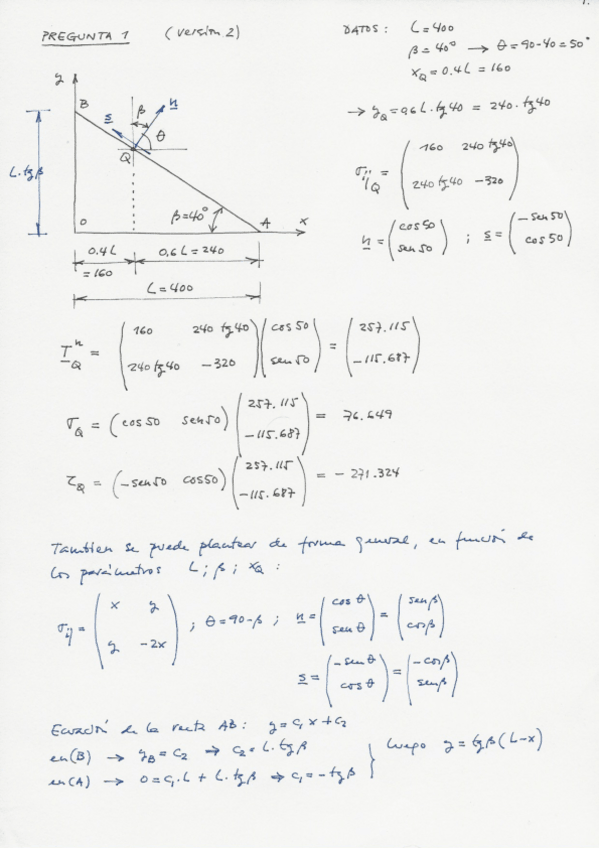 1.
PREGUNTA 1 (versión 2)
DATOS: L = 400
β = 40° → θ = 90-40 = 50°
x_Q = 0.4L = 160
→ y_Q = 0.6L.tg40 = 240.tg40
y
B
β
n
s
θ
Q
L.tgβ
β=40°
O
A
x
0.4L
= 160
0,6L = 240
L = 400
σ_ij)_Q = ( 160 240 tg40
240 tg40 -320 )
n = ( cos 50
sen 50 ) ; s = ( -sen 50
cos 50 )
T_Q^n = ( 160 240 tg 40
240 tg 40 -320 ) ( cos 50
sen 50 ) = ( 257.115
-115.687 )
σ_Q = ( cos 50 sen 50 ) ( 257.115
-115.687 ) = 76.649
τ_Q = ( -sen 50 cos 50 ) ( 257.115
-115.687 ) = -271.324
Tambien se puede plantear de forma general, en función de
los parámetros L ; β ; x_Q :
σ_ij = ( x y
y -2x ) ; θ = 90-β ; n = ( cos θ
sen θ ) = ( sen β
cos β )
s = ( -sen θ
cos θ ) = ( -cos β
sen β )
Ecuación de la recta AB: y = c₁ x + c₂
en (B) → y_B = c₂ ⇒ c₂ = L.tgβ
en (A) → 0 = c₁.L + L.tgβ ⇒ c₁ = -tgβ } luego y = tgβ (L-x)